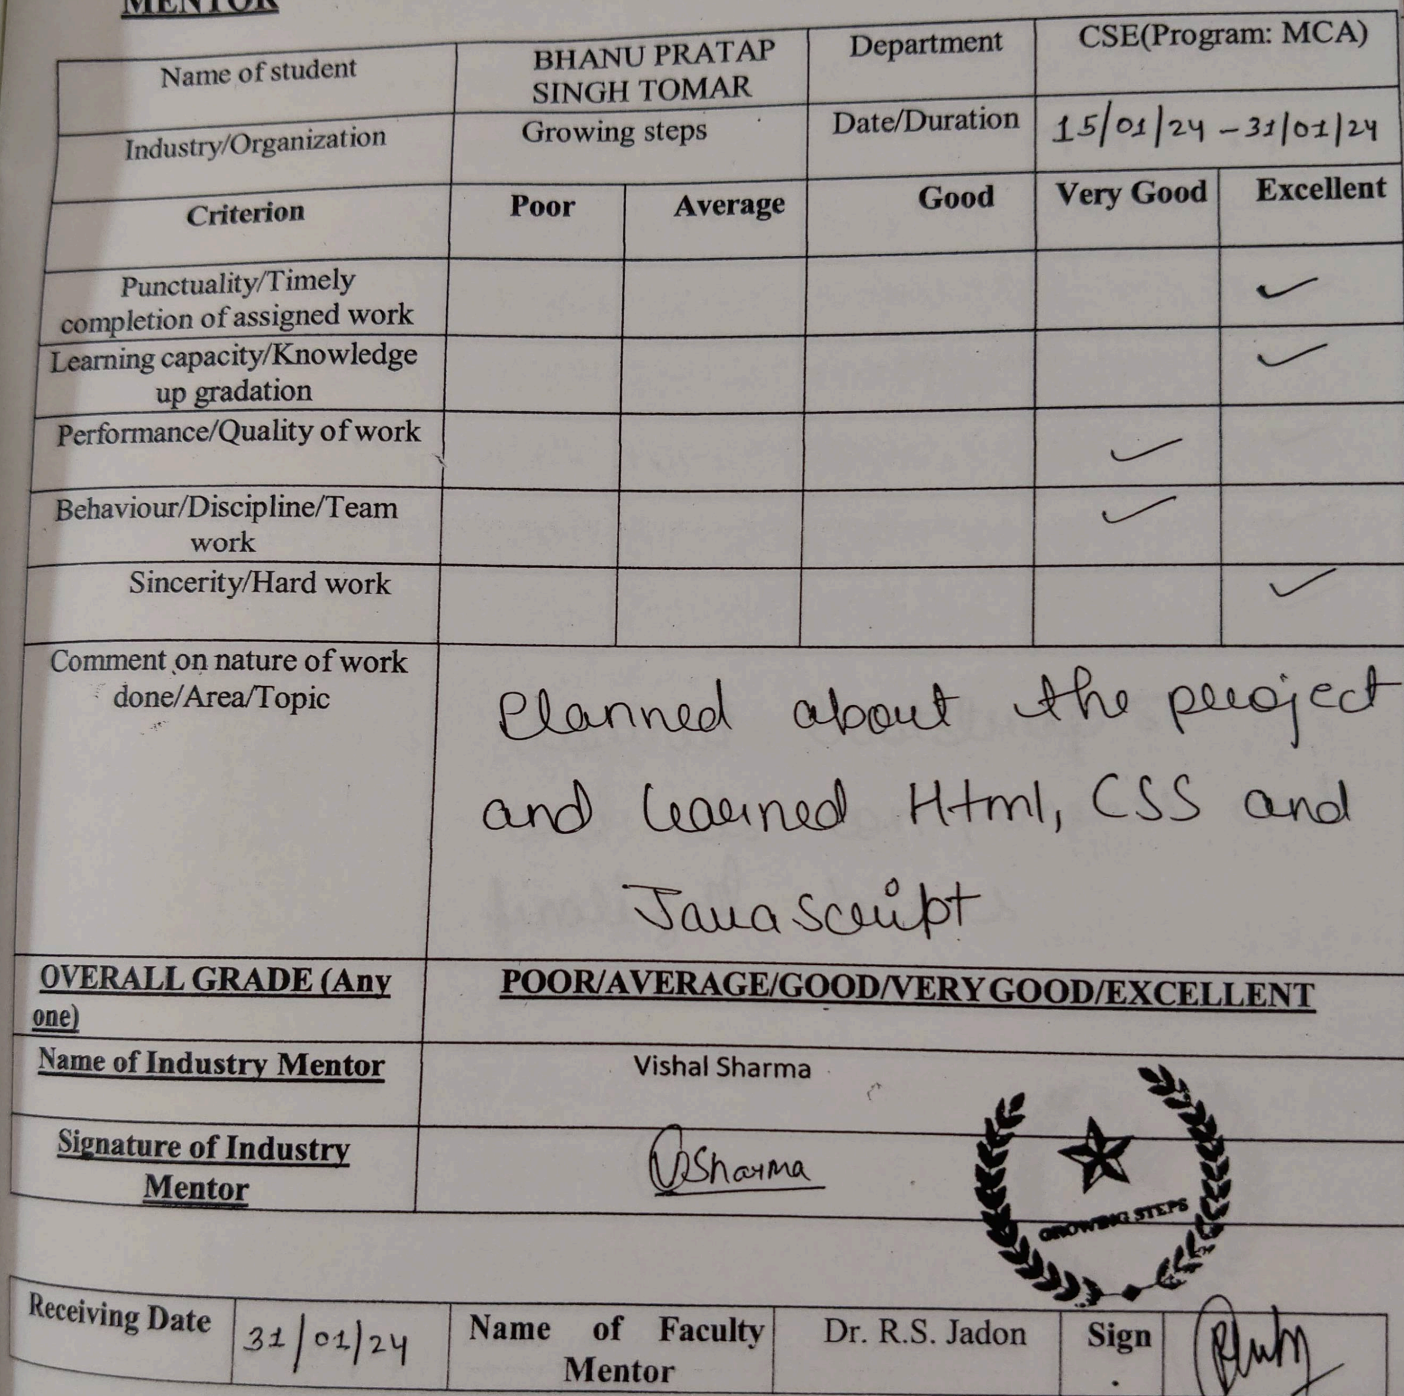 MENTOR
Name of student
BHANU PRATAP
SINGH TOMAR
Department
CSE(Program: MCA)
Industry/Organization
Growing steps
Date/Duration
15/01/24 - 31/01/24
Criterion
Poor
Average
Good
Very Good
Excellent
Punctuality/Timely
completion of assigned work
Learning capacity/Knowledge
up gradation
Performance/Quality of work
Behaviour/Discipline/Team
work
Sincerity/Hard work
Comment on nature of work
done/Area/Topic
Planned about the project
and learned Html, CSS and
Javascript
OVERALL GRADE (Any
one)
POOR/AVERAGE/GOOD/VERY GOOD/EXCELLENT
Name of Industry Mentor
Vishal Sharma
Signature of Industry
Mentor
VSharma
GROWING STEPS
Receiving Date
31/01/24
Name of Faculty
Mentor
Dr. R.S. Jadon
Sign